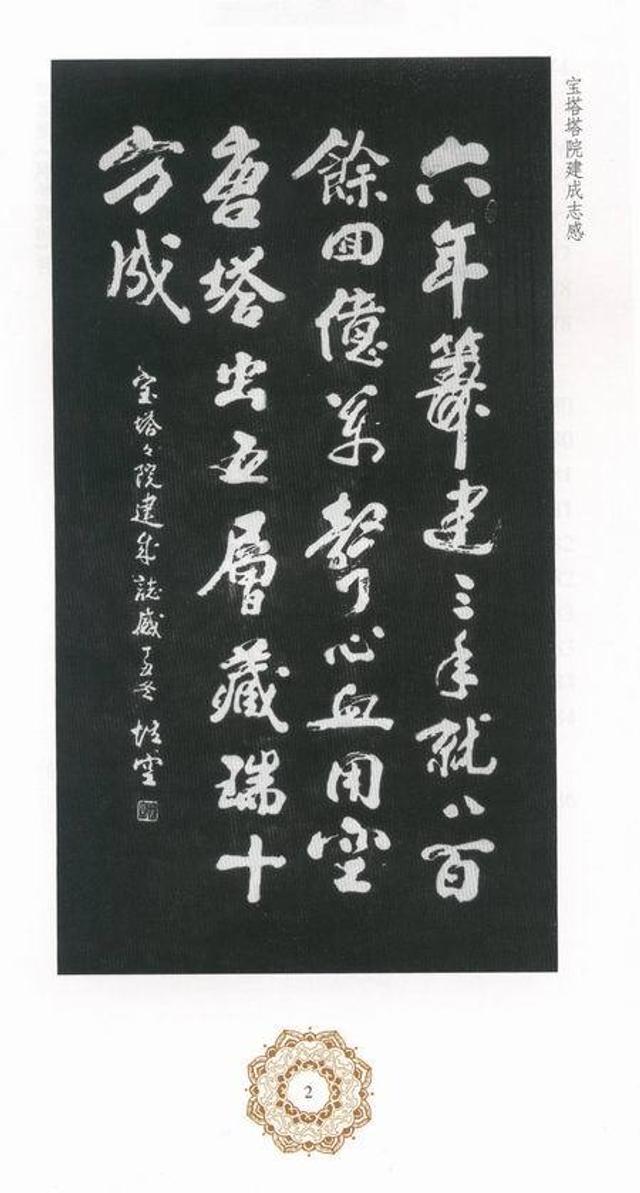 宝塔塔院建成志感
六年籌建三年就八百
餘囬億萬聲心血用空
唐塔出五層藏瑞十
方成
宝塔々院建成誌感丁丑冬
2